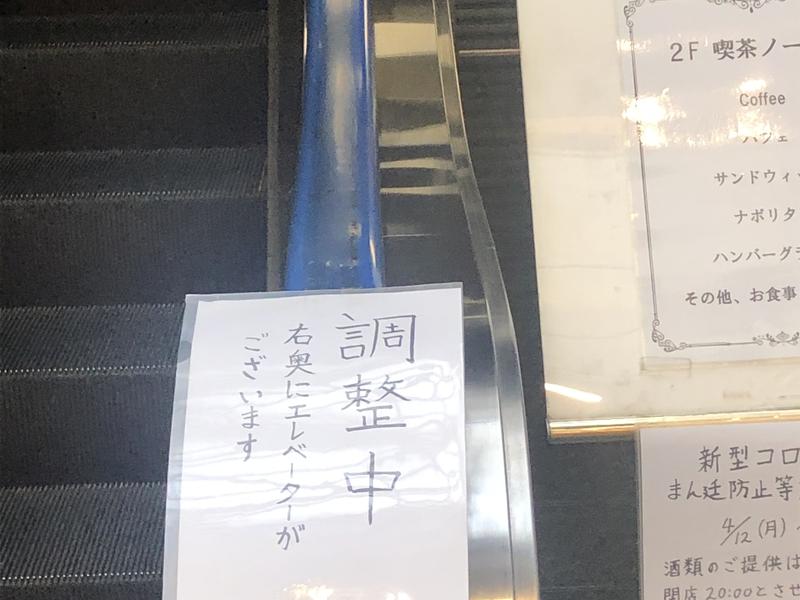 調整中
右奥にエレベーターが
ございます
2F 喫茶ノー
Coffee
パフェ
サンドウィッ
ナポリタ
ハンバーグラ
その他、お食事
新型コロ
まん延防止等
4/12(月)~
酒類のご提供は
閉店20:00とさせ